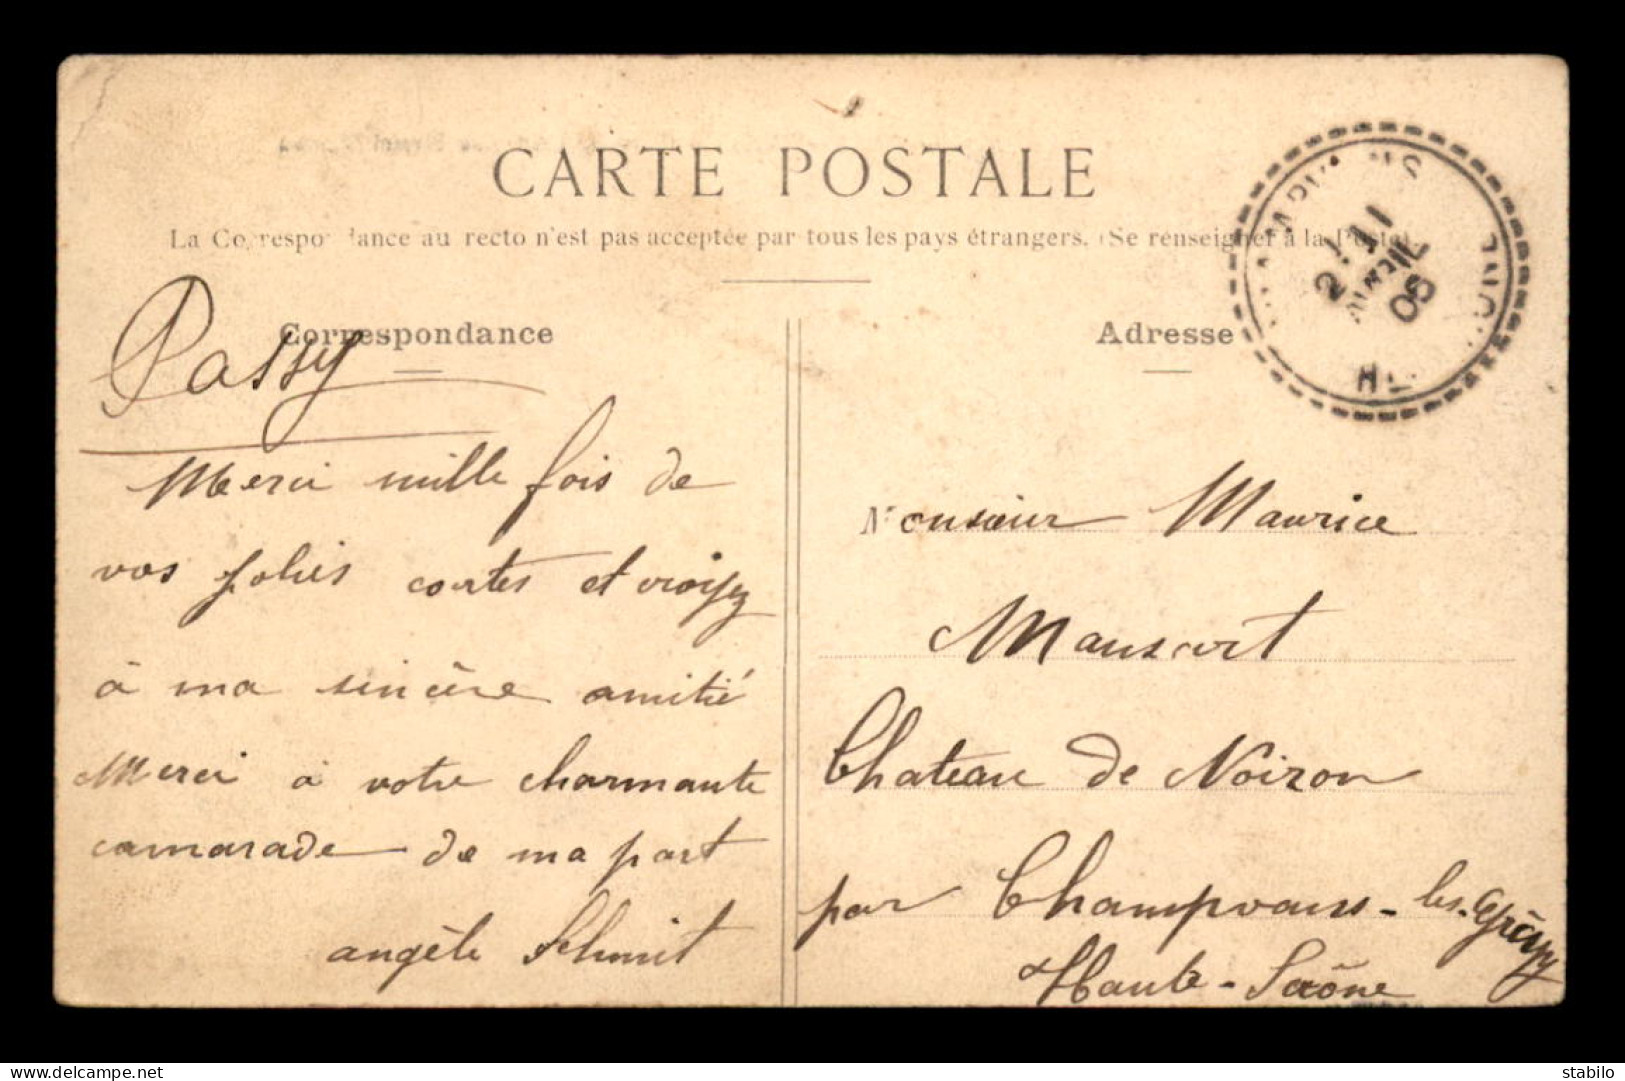 CARTE POSTALE
La Correspondance au recto n'est pas acceptée par tous les pays étrangers. (Se renseigner à la Poste).
Correspondance
Passy
Merci mille fois de
vos jolies cartes et croyez
à ma sincère amitié
Merci à votre charmante
camarade de ma part
angèle Schmit
Adresse
AVRIL
Monsieur Maurice
Mansart
Chateau de Noiron
par Champvans-les-Gray
Haute-Saône
www.delcampe.net
stabilo